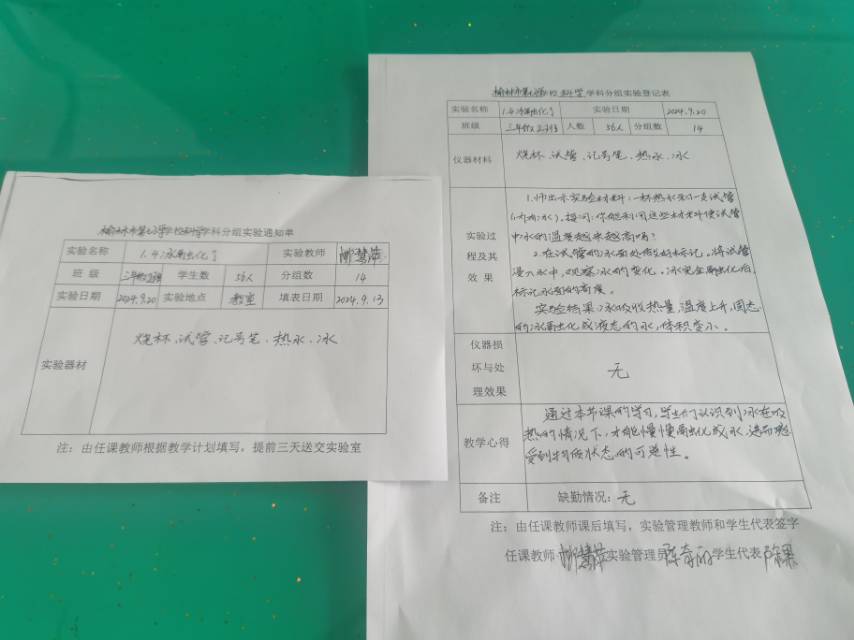 榆林市第 学校科学学科分组实验通知单
实验名称 1.4 冰融化了 实验教师
班 级 三年级2班 学生数 56人 分组数 14
实验日期 2024.9.20 实验地点 教室 填表日期 2024.9.13
实验器材 烧杯、试管、记号笔、热水、冰
注：由任课教师根据教学计划填写，提前三天送交实验室
榆林市第 学校 科学 学科分组实验登记表
实验名称 1.4 冰融化了 实验日期 2024.9.20
班级 三年级2班 人数 56人 分组数 14
仪器材料 烧杯、试管、记号笔、热水、冰
实验过
程及其
效 果
1.师出示实验材料：一杯热水和一支试管
(内有冰)。提问：你能利用这些材料使试管
中冰的温度越来越高吗？
2.在试管的冰面处做好标记。将试管
浸入水中，观察冰的变化。冰完全融化后，
标记水面的高度。
实验结果：冰吸收热量，温度上升，固态
的冰融化成液态的水，体积变小。
仪器损
坏与处
理效果
无
教学心得
通过本节课的学习，学生们认识到冰在吸
热的情况下，才能慢慢融化成水，进而感
受到物质状态的可逆性。
备注 缺勤情况：无
注：由任课教师课后填写，实验管理教师和学生代表签字
任课教师 实验管理员 学生代表